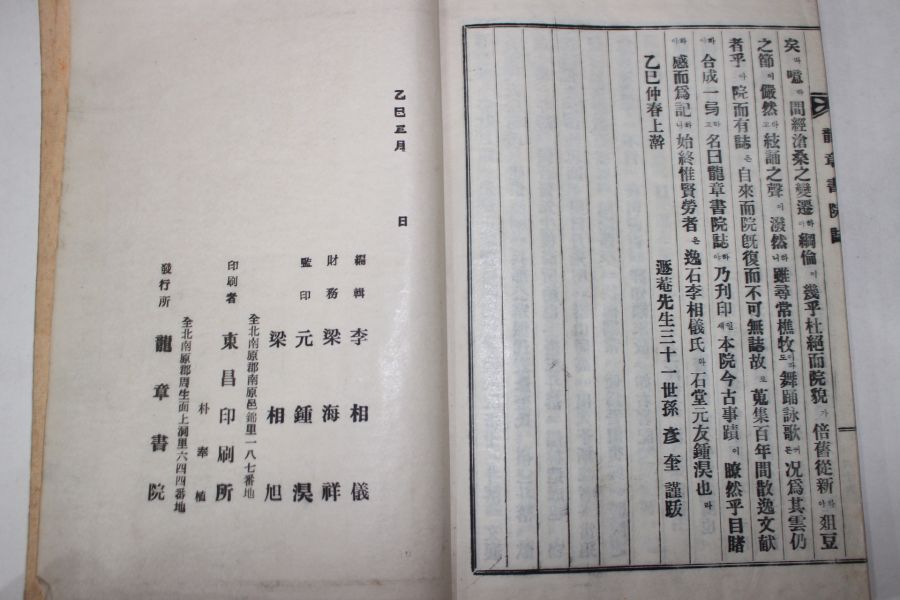 龍章書院誌
矣라 噫라 間經滄桑之變遷하야 綱倫이 幾乎杜絕而院貌가 倍舊從新하야 俎豆
之節이 儼然하고 絃誦之聲이 潑然하니 雖尋常樵牧이라도 舞踊詠歌 况爲其雲仍
者乎아 院而有誌은 自來而院旣復而不可無誌故로 蒐集百年間散逸文献
하야 合成一 하고 名曰龍章書院誌하야 乃刋印일새 本院今古事蹟이 瞭然乎目睹
하야 感而爲記하니 始終惟賢勞者은 逸石李相儀氏와 石堂元友鍾淏也라
乙巳仲春上澣 遯菴先生三十一世孫 彦奎 謹跋
乙巳正月 日
編輯 李相儀
財務 梁海祥
監印 元鍾淏
梁相旭
全北南原郡南原邑錦里一八七番地
印刷者 東昌印刷所
朴奉植
全北南原郡周生面上洞里六四四番地
發行所 龍章書院